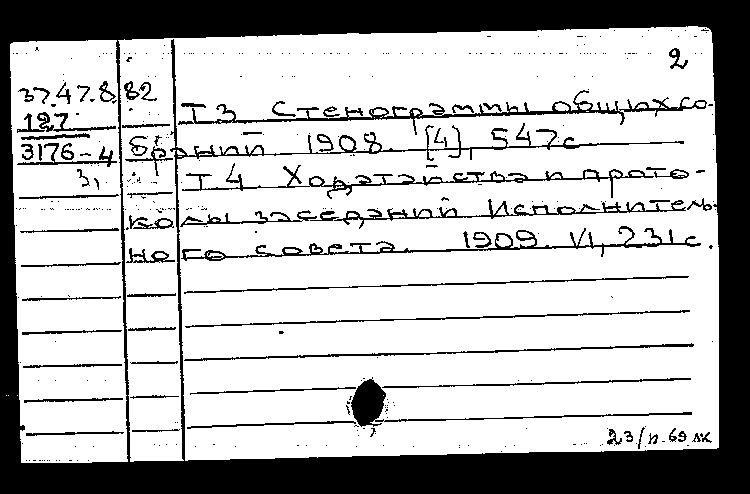 2
37.47.8.82
127
3176-4
3,
Т 3 Стенограммы общих со-
браний 1908. [4], 547с
Т 4. Ходатайства и прото-
колы заседаний Исполнитель-
ного совета. 1909. VI, 231 с.
23/п.69 лк